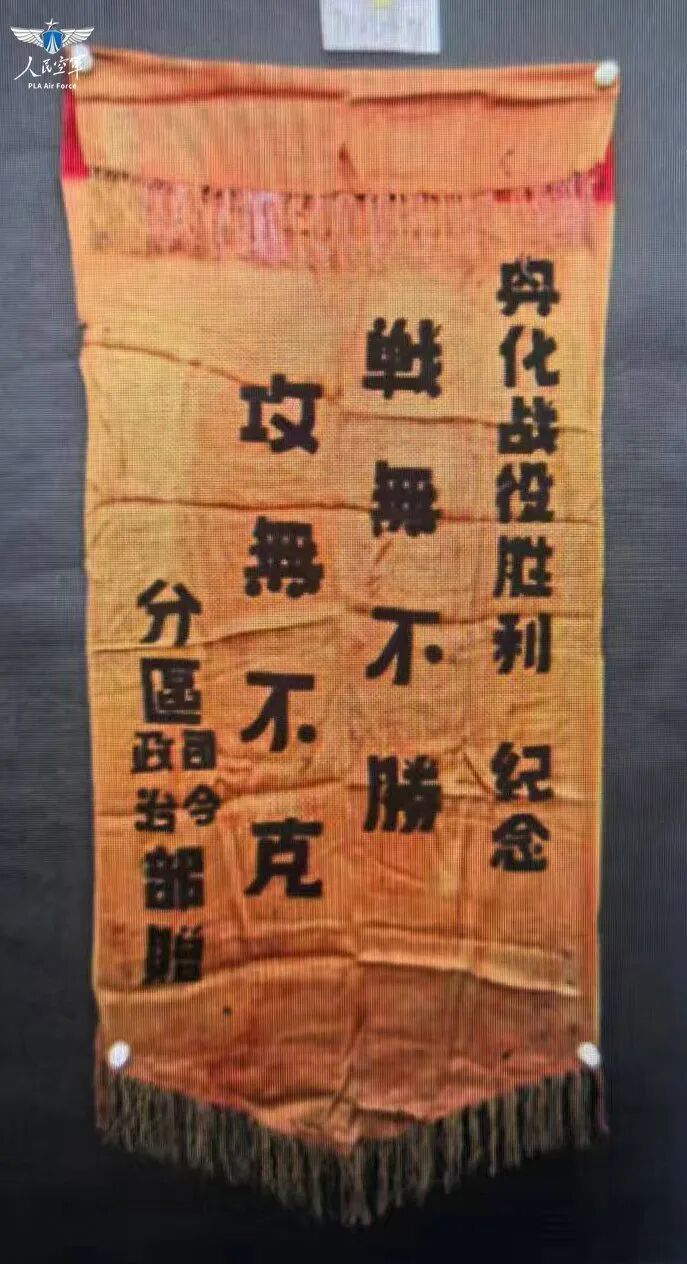 人民空军
PLA Air Force
興化战役胜利 纪念
戦無不勝
攻無不克
分區司令政治部贈